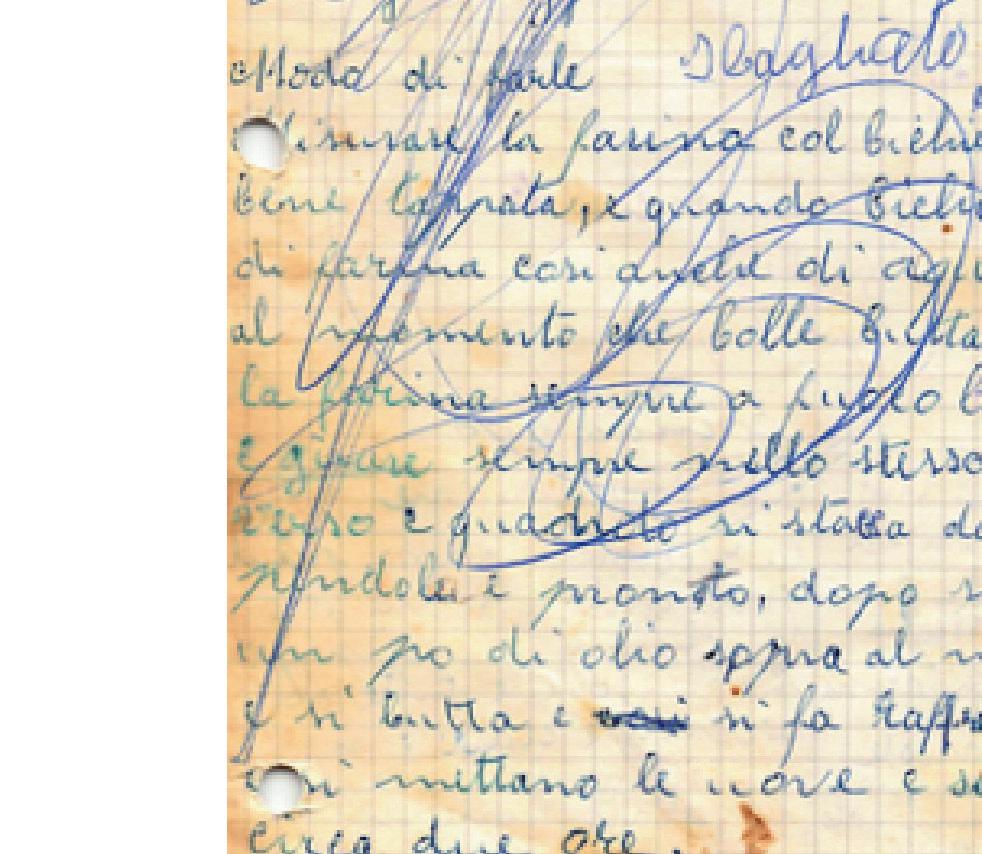 Modo di farle Sbagliato
Misurare la farina col bichie
bene tappata, e quando bichi
di farina cosi anche di aqu
al momento che bolle butta
la farina sempre a fuoco b
e girare sempre nello stesso
verso e quando si stacca da
pendola e pronto, dopo
un po di olio sopra al m
e si butta e si fa raffre
e si mettano le uove e se
circa due ore.